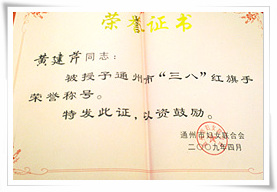 荣誉证书
黄建萍同志：
被授予通州市“三八”红旗手
荣誉称号。
特发此证，以资鼓励。
通州市妇女联合会
二〇〇九年四月